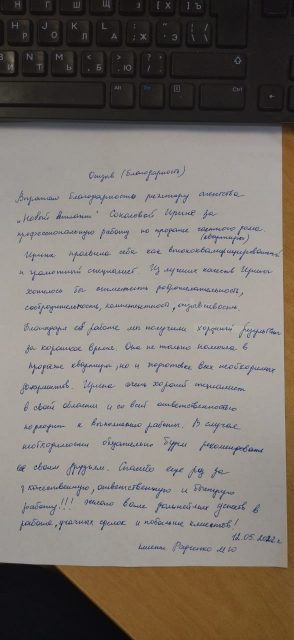 Отзыв (благодарность)
Выражаю благодарность риэлтору агентства
"Новый Атлант" Соколовой Ирине за
профессиональную работу по продаже частного дома
(квартиры)
Ирина проявила себя как высококвалифицированный
и грамотный специалист. Из лучших качеств Ирины
хотелось бы отметить доброжелательность,
сообразительность, компетентность, отзывчивость.
Благодаря её работе мы получили хороший результат
за короткое время. Она не только помогла в
продаже квартиры, но и подготовке всех необходимых
документов. Ирина очень хороший специалист
в своей области и со всей ответственностью
подходит к выполнению работы. В случае
необходимости обязательно будем рекомендовать
её своим друзьям. Спасибо еще раз за
качественную, ответственную и быструю
работу!!! Желаю вам дальнейших успехов в
работе, удачных сделок и побольше клиентов!
12.05.2022 г.
Радченко М Ю